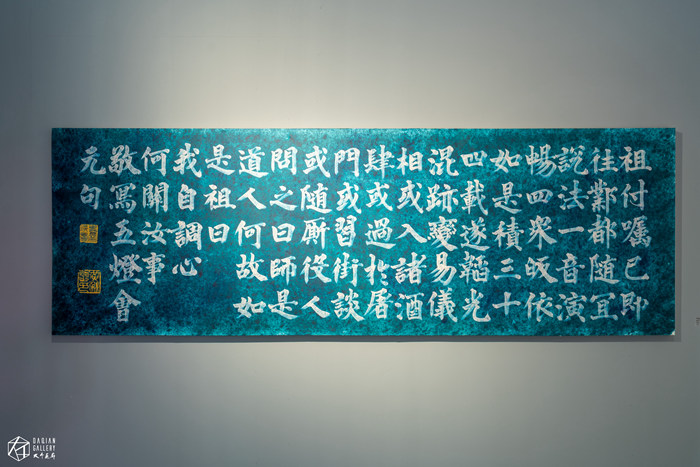 祖付囑已即
往鄴都随冝
説法一音演
暢四衆皈依
如是積三十
四載遂韜光
混跡變易儀
相或入諸酒
肆或過於屠
門或習街談
或随厮役人
問之曰師是
道人何故如
是祖曰
我自調心
何關汝事
敬寫五燈會
元句
DAQIAN
GALLERY